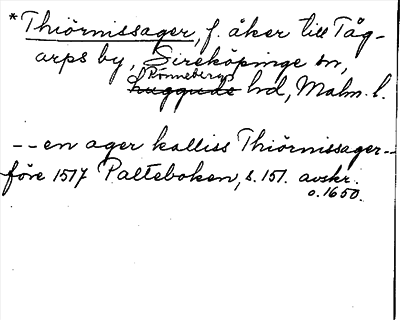 *Thiörnissager, f. åker till Tåg-
arps by, Sireköpinge sn,
Rönnebergs
Luggude hd, Malm. l.
-- en ager kalliss Thiörnissager --
före 1517 Palteboken, s. 151. avskr.
o. 1650.